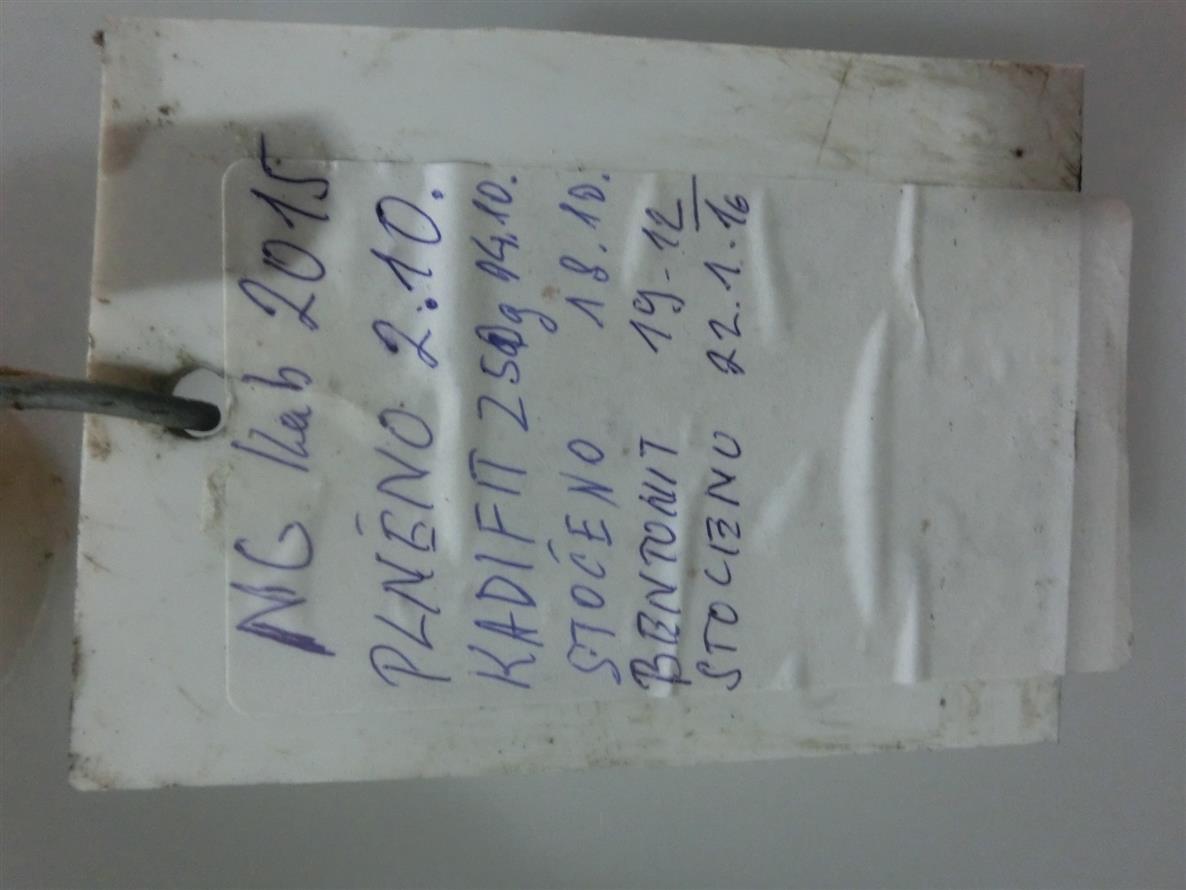 NG kab 2015
PLNĚNO 2.10.
KADIFIT 250g 14.10.
STOČENO 18.10.
BENTONIT 19-12
STOČENO 22.1.16